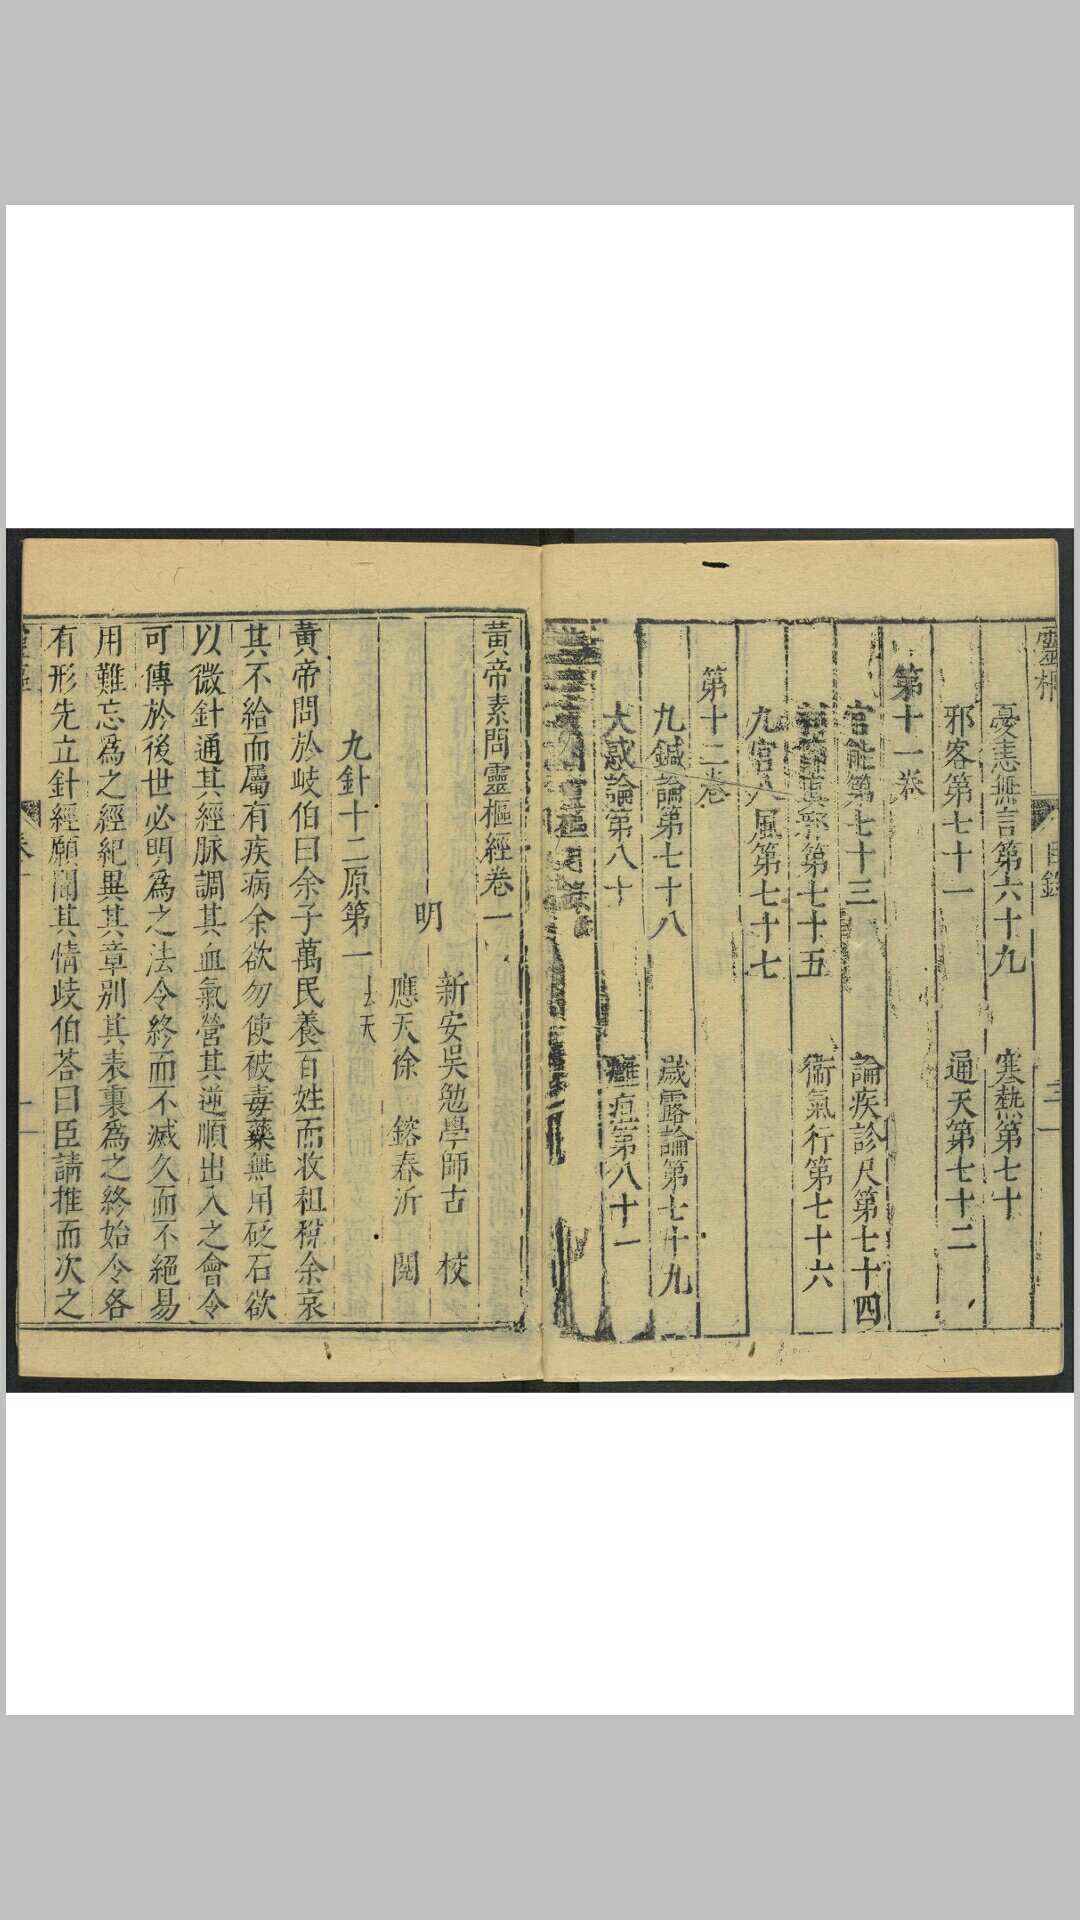 靈樞
目錄
三
憂恚無言第六十九 寒熱第七十
邪客第七十一 通天第七十二
第十一卷
官能第七十三 論疾診尺第七十四
第七十五 衞氣行第七十六
九宮八風第七十七
第十二卷
九鍼論第七十八 歲露論第七十九
大惑論第八十 癰疽第八十一
黃帝素問靈樞經卷一
明
新安吳勉學師古 校
應天徐 鎔春沂 閱
九針十二原第一 法天
黃帝問於岐伯曰余子萬民養百姓而收租稅余哀
其不給而屬有疾病余欲勿使被毒藥無用砭石欲
以微針通其經脉調其血氣營其逆順出入之會令
可傳於後世必明爲之法令終而不滅久而不絕易
用難忘爲之經紀異其章別其表裏爲之終始令各
有形先立針經願聞其情歧伯荅曰臣請推而次之